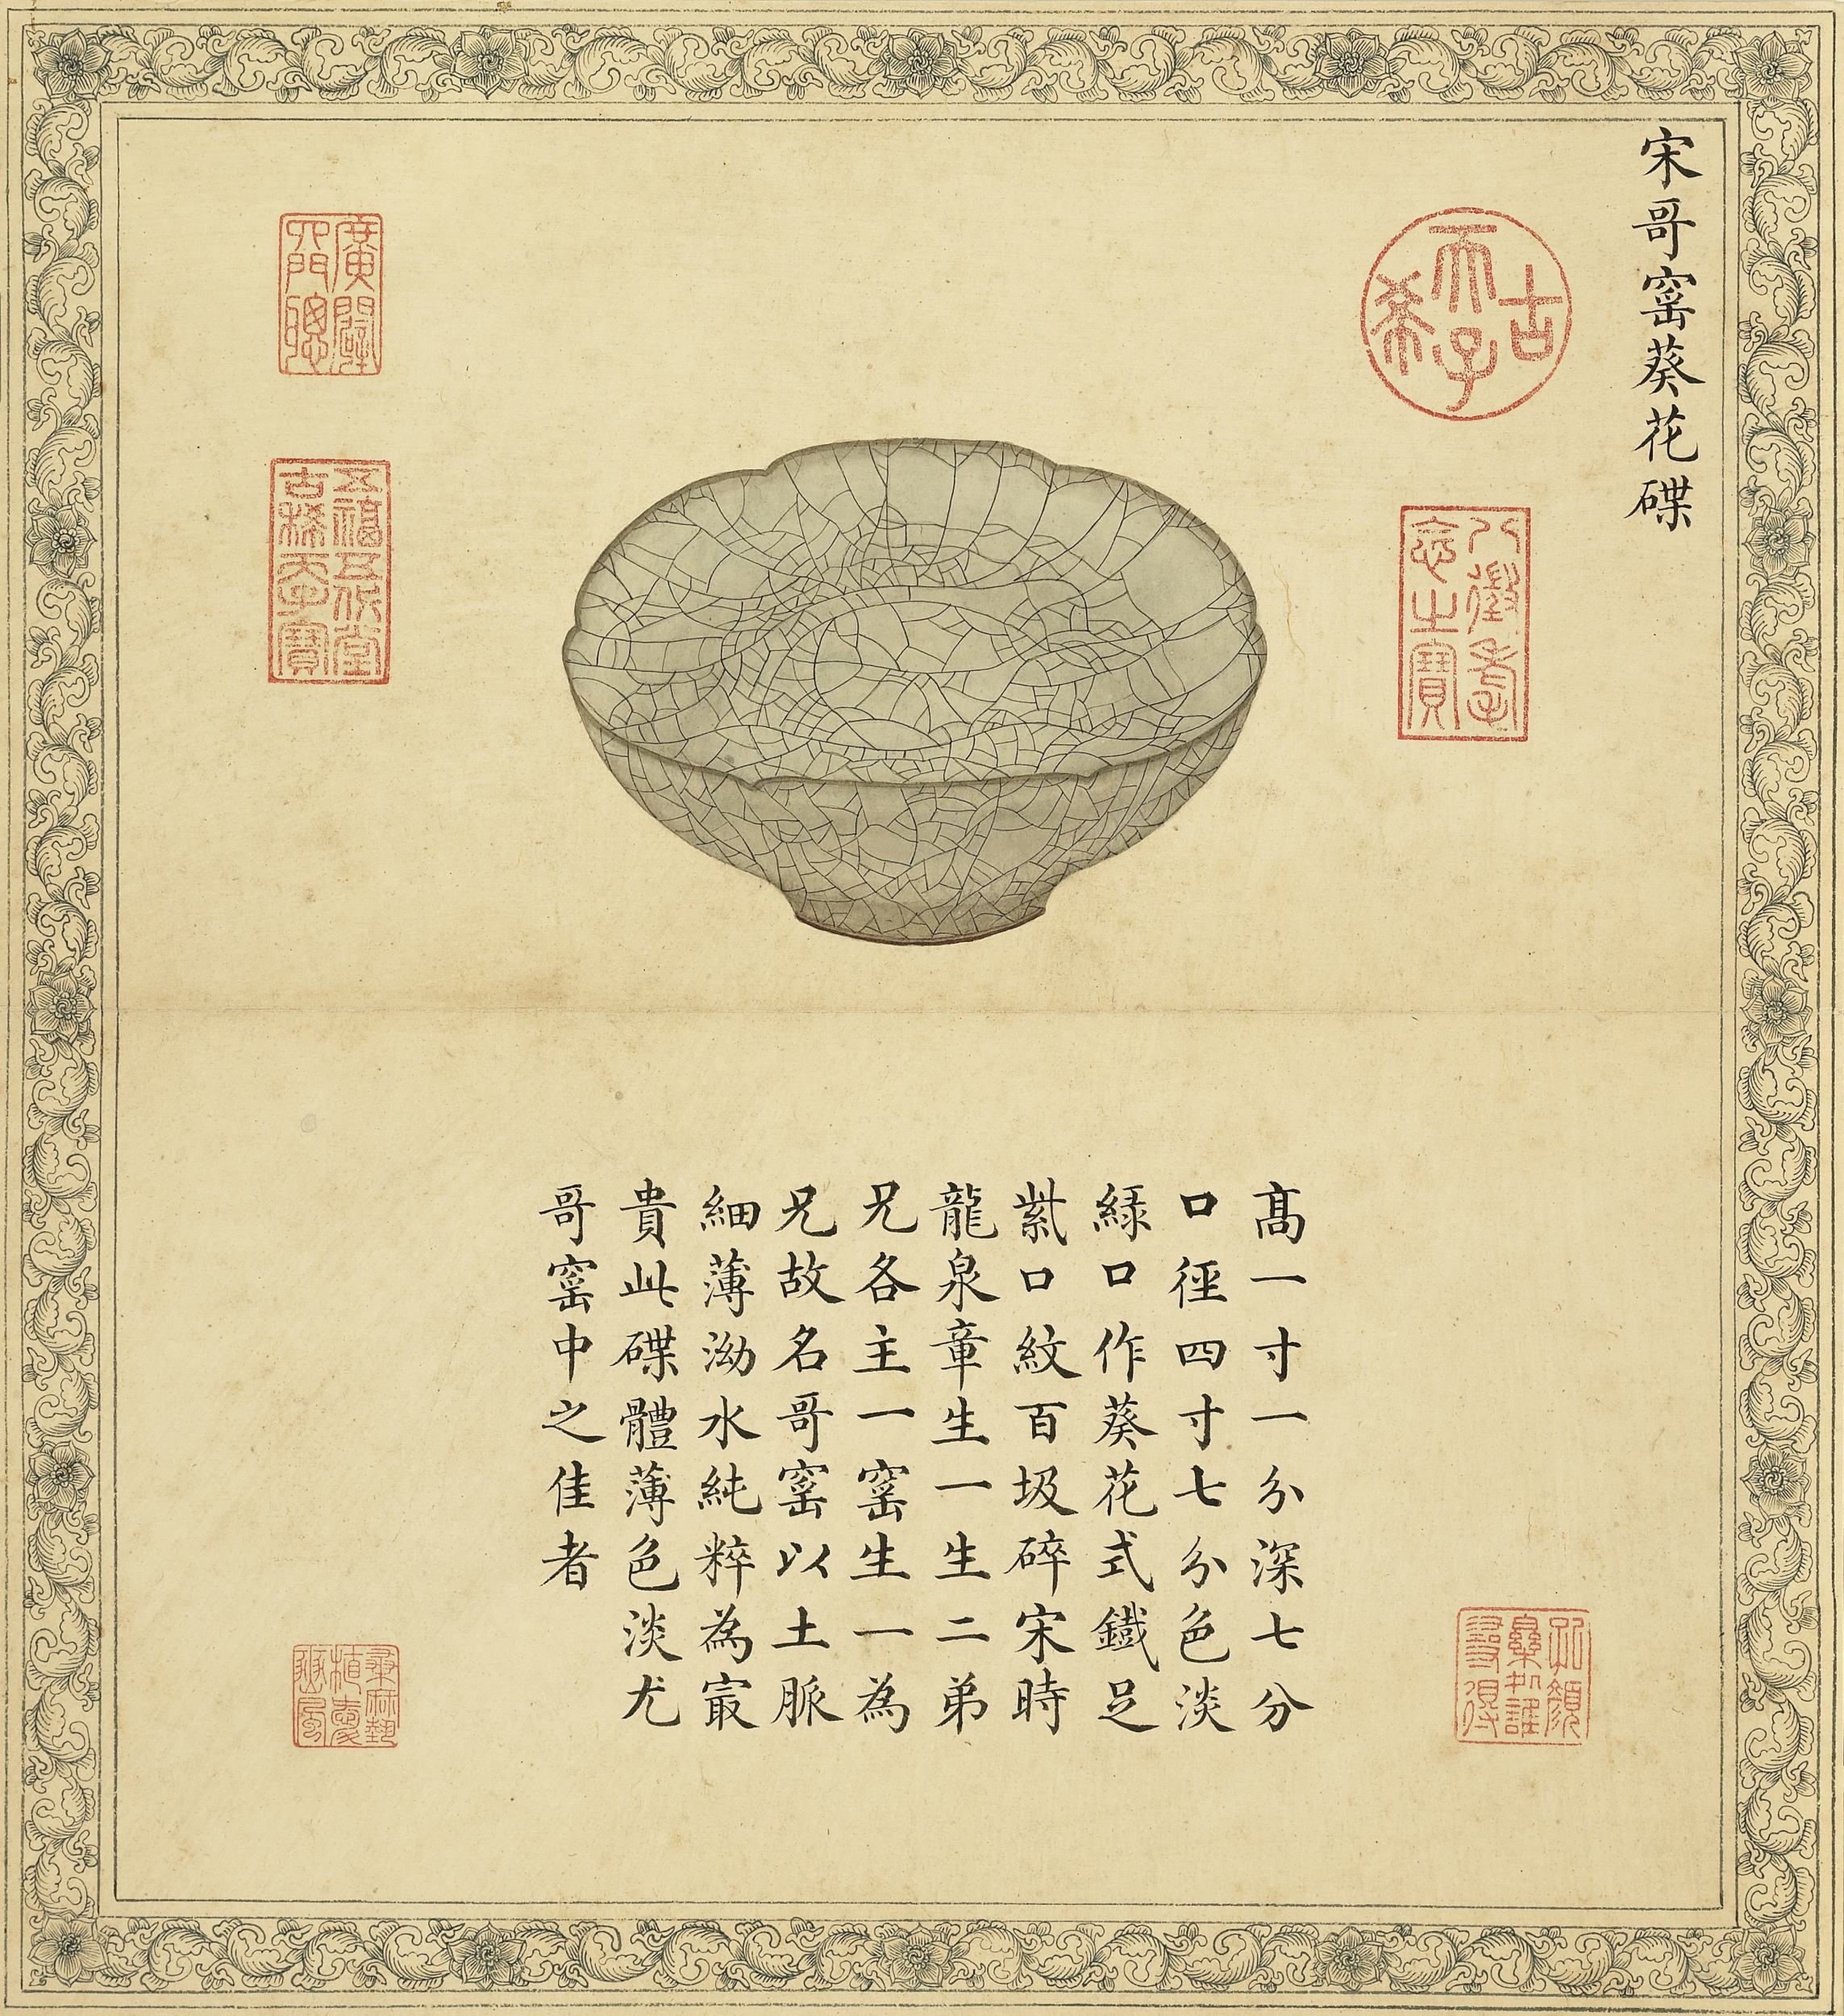 宋哥窰葵花碟
古希天子
八徵耄念之寶
廣闢四門聰
五福五代堂古稀天子寶
高一寸一分深七分
口徑四寸七分色淡
緑口作葵花式鐵足
紫口紋百圾碎宋時
龍泉章生一生二弟
兄各主一窰生一為
兄故名哥窰以土脈
細薄泑水純粹為㝡
貴此碟體薄色淡尤
哥窰中之佳者